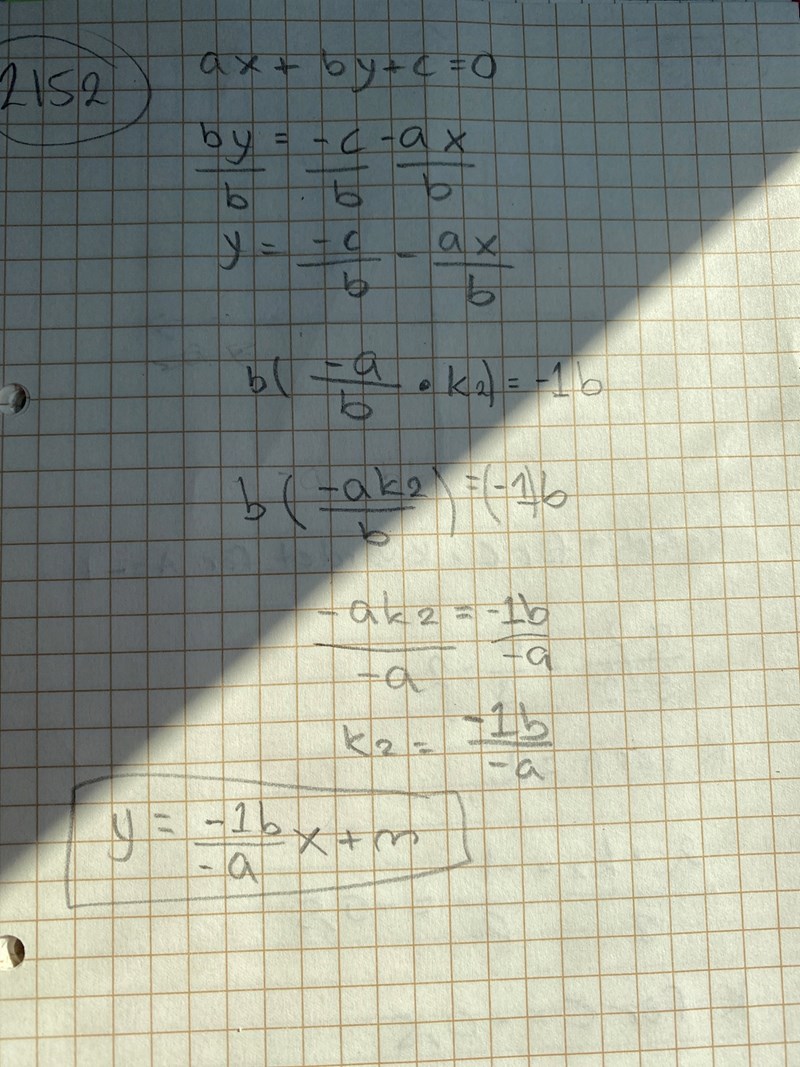 2152
ax + by + c = 0
by/b = -c/b - ax/b
y = -c/b - ax/b
b( -a/b • k2) = -1b
b ( -ak2/b ) = (-1)b
-ak2/-a = -1b/-a
k2 = -1b/-a
y = -1b/-a x + m